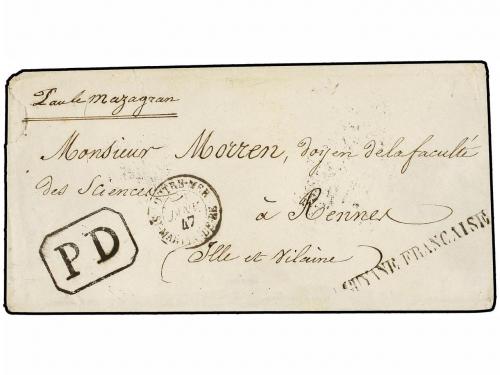 Par le Mazagran
Monsieur Morren, doyen de la faculté
des Sciences
à Rennes
(Ille et Vilaine
OUTRE-MER
JANV
47
PD
GUYANE FRANCAISE